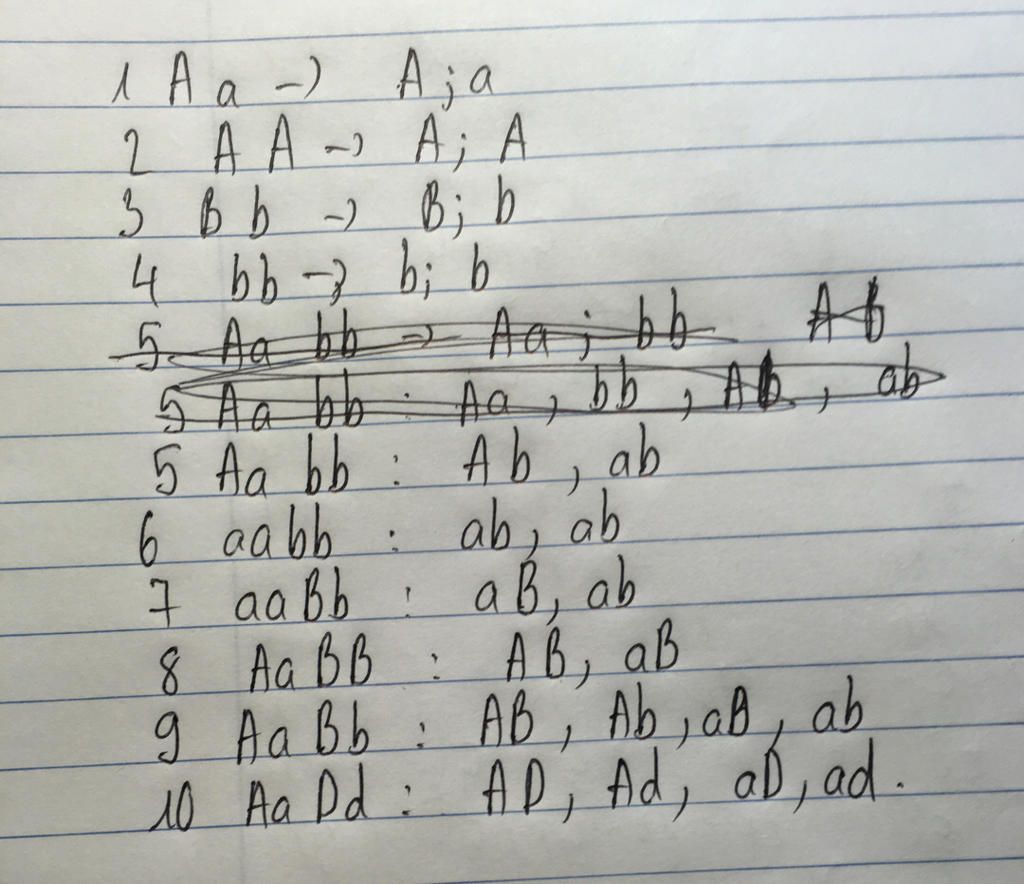 1 A a → A ; a
2 A A → A ; A
3 B b → B ; b
4 bb → b ; b
5 Aa bb → Aa ; bb Ab
5 Aa bb : Aa , bb , Ab , ab
5 Aa bb : Ab , ab
6 aabb : ab, ab
7 aaBb : aB, ab
8 AaBB : AB, aB
9 AaBb : AB , Ab , aB , ab
10 AaDd : AD, Ad, aD, ad.